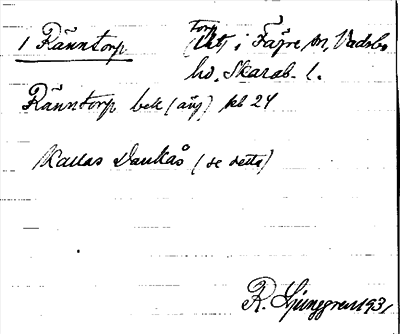 1 Ränntorp torp (Utj) i Fägre sn, Vadsbo
hd, Skarab. l.
Ränntorp bek (äng) kbl 24
Kallas Dankås (se detta)
R. Ljunggren 1931